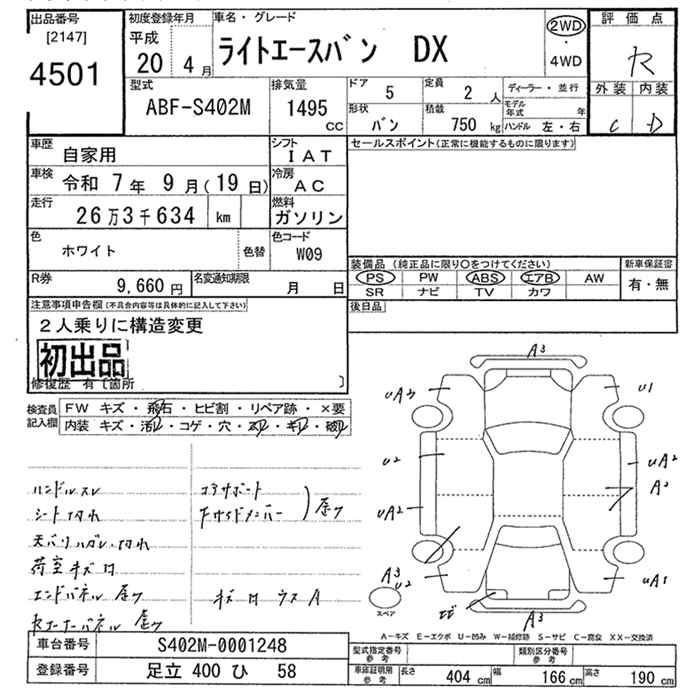 出品番号
[2147]
4501
初度登録年月
平成
20 4月
車名・グレード
ライトエースバン DX
2WD
・
4WD
評価点
R
外装 内装
C D
型式
ABF-S402M
排気量
1495
CC
ドア
5
定員
2人
形状
バン
積載
750 kg
ディーラー・並行
モデル年式 年
ハンドル 左・右
車歴
自家用
シフト
IAT
車検 令和 7年 9月(19日)
冷房
AC
走行
26万3千634 km
燃料
ガソリン
色
ホワイト
色替
色コード
W09
R券
9,660円
名変通知期限
月 日
セールスポイント(正常に機能するものに限ります)
装備品 (純正品に限り○をつけてください)
PS PW ABS エアB AW
SR ナビ TV カワ
新車保証書
有・無
後日品
注意事項申告欄(不具合内容等は具体的に記入して下さい)
2人乗りに構造変更
初出品
修復歴 有〔箇所 〕
検査員
記入欄
FW キズ・飛石・ヒビ割・リペア跡・×要
内装 キズ・汚れ・コゲ・穴・スレ・キレ・破れ
ハンドルスレ
シート切れ
天バリハガレ、切れ
荷室キズ凹
エンドパネル 歪ク
コアサポート
下サイドメンバー
歪ク
キズ凹 ウスA
A3
UA3
U1
U2
UA2
A2
UA2
A3
U2
UA1
A3
スペア
A-キズ E-エクボ U-凹み W-補修跡 S-サビ C-腐食 XX-交換済
車台番号
S402M-0001248
登録番号
足立 400 ひ 58
型式指定番号
参考
類別区分番号
参考
車庫証明用
参考
長さ 404 cm
幅 166 cm
高さ 190 cm